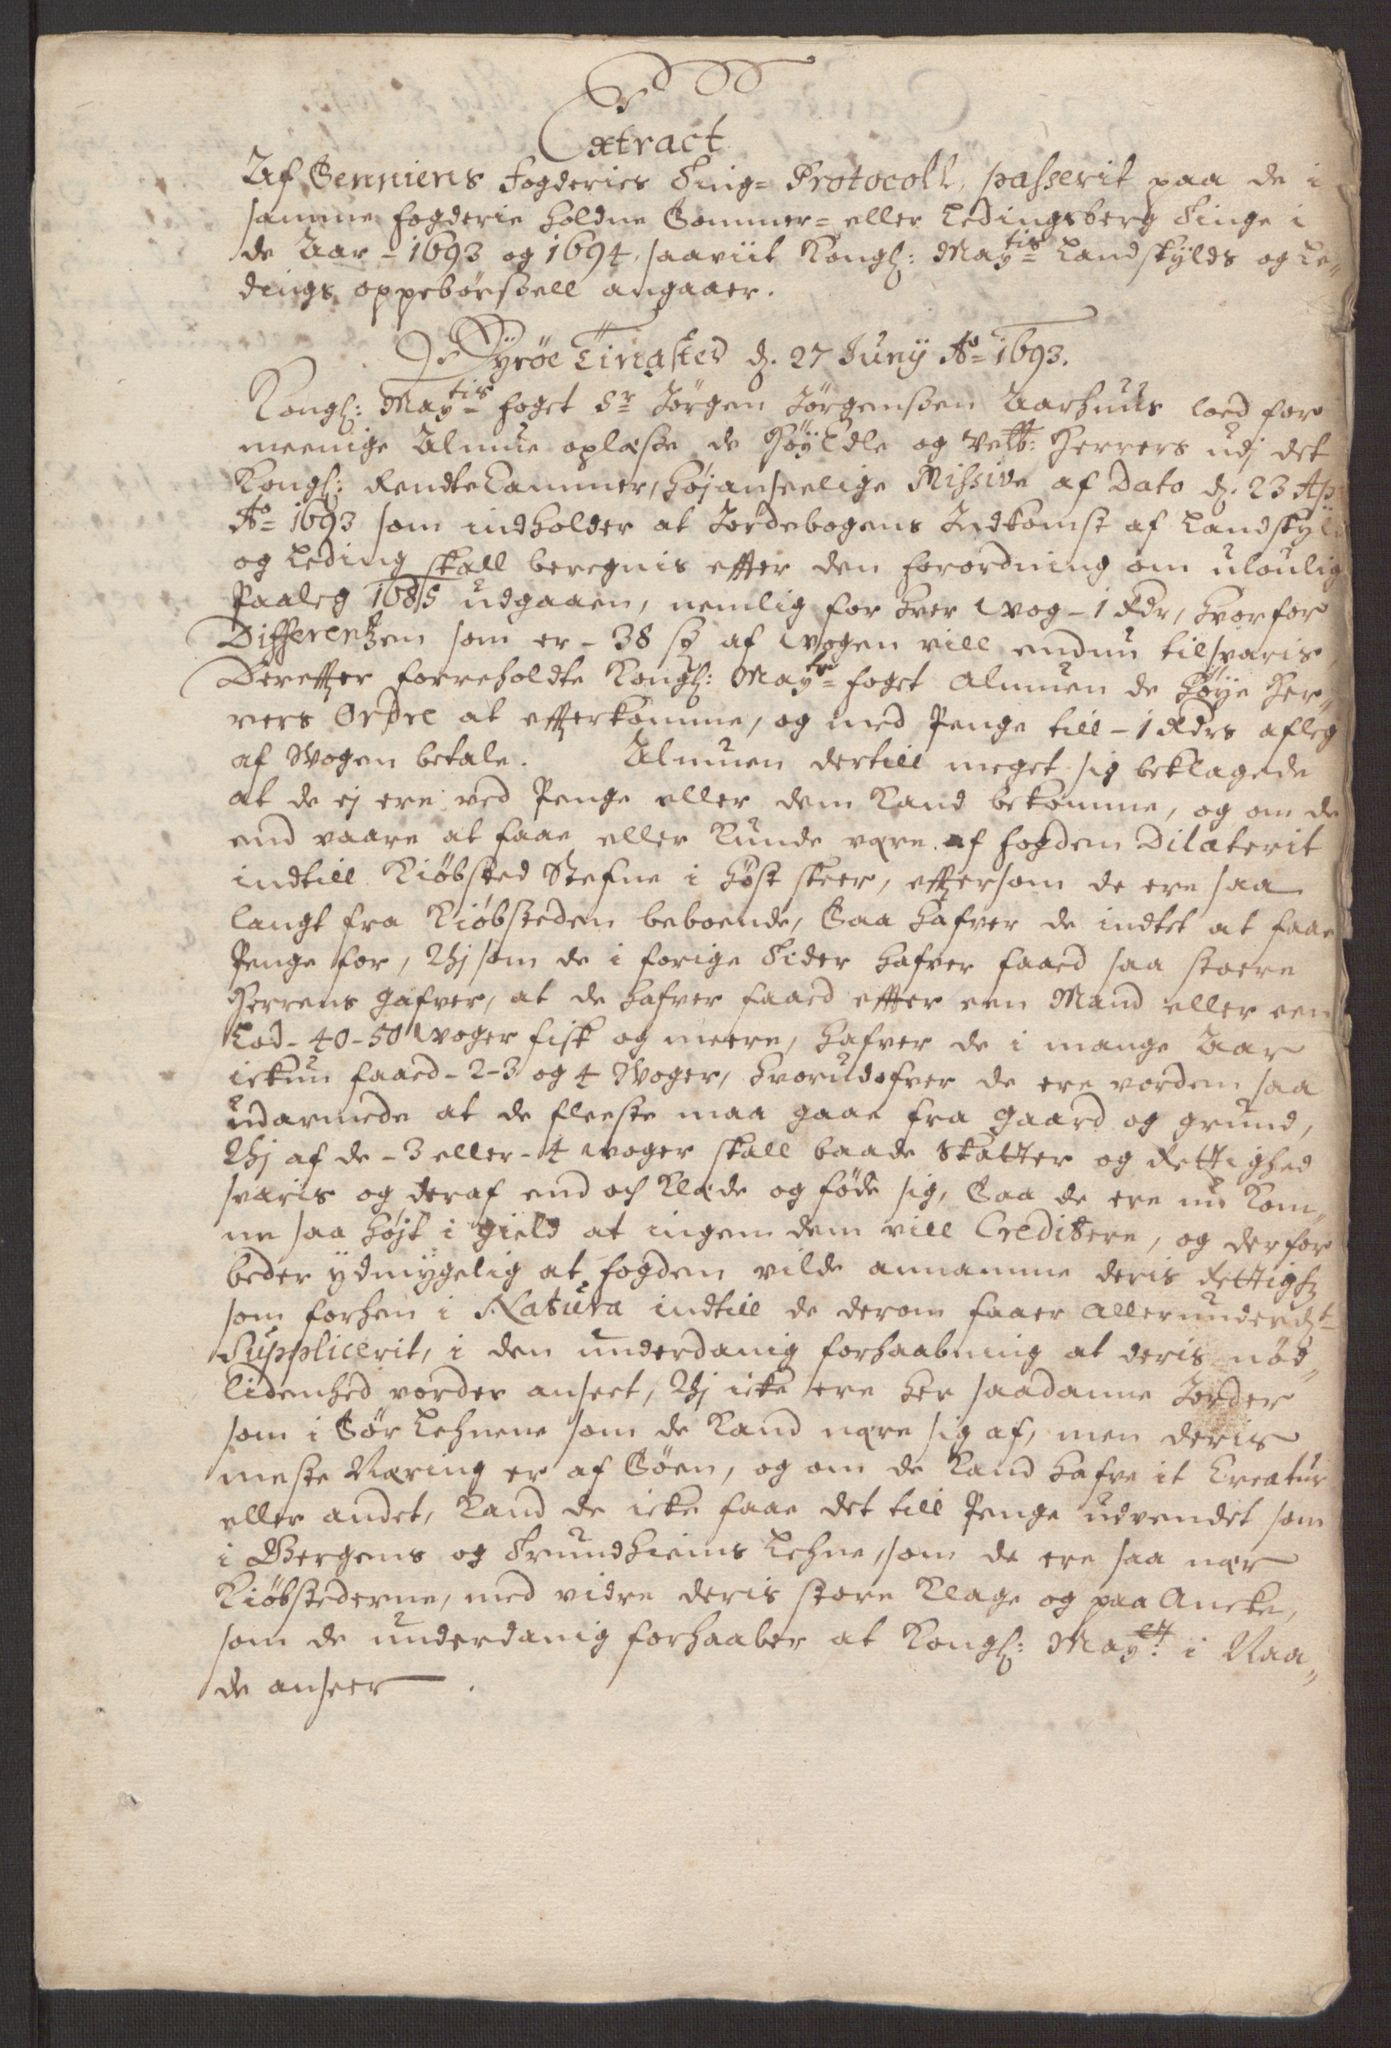 Extract
Af Senniens Fogderies Ting= Protocoll, passerit paa de i
samme fogderie holdne Sommer= eller Ledingsberg Tinge i
de Aar - 1693 og 1694, saaviit Kongl: Maytis Landskylds og Le„
dings oppebørßell angaaer.
Dyrøe Tingsted d. 27 Juny Ao 1693.
Kongl: Maytis foget Sr Jørgen Jørgenßen Aarhuus loed for
meenige Almue oplæße de HøyEdle og Velb: Herrers udj det
Kongl: RendteCammer, højanseelige Missive af Dato d. 23 Ap
Ao 1693 som indholder at Jordebogens Indkomst af Landskyld
og Leding skall beregnis effter den forordning om uloulig
Paaleg 1685 udgaaen, nemlig for hver wog - 1 Rdr, hvorfor
Differentzen som er - 38 sz af wogen vill endnu tilsvaris,
Dereffter forreholdte Kongl: Mayts foget Almuen de Høye Her„
rers Ordre at effterkomme, og med Penge till - 1 Rdrs afleg
af Wogen betale. Almuen dertill meget sig beklagede
at de ej ere ved Penge eller dem Kand bekomme, og om de
end vaare at faae eller Kunde være af fogden Dilaterit
indtill Kiøbsted Stefne i høst skeer, efftersom de ere saa
langt fra Kiøbsteden beboende, Saa hafver de indtet at faae
Penge for, Thj som de i forige Tider hafver faaed saa stoere
Herrens gafver, at de hafver faaed effter een Mand eller een
Lod - 40 - 50 woger fisk og meere, hafver de i mange Aar
ickun faaed - 2 - 3 og 4 Woger, hvorudofver de ere vorden saa
udarmede at de fleeste maa gaae fra gaard og grund,
Thj af de - 3 eller - 4 woger skall baade Skatter og Rettighed
svaris og deraf end och Klæde og føde sig, Saa de ere nu Kom„
ne saa højt i gield at ingen dem vill Creditere, og derfor
beder ydmygelig at fogden vilde annamme deris Rettigh
som forhen i Natura indtill de derom faaer Allerunderdt
Supplicerit, i den underdanig forhaabning at deris nød„
lidenhed vorder anseet, Thj icke ere her saadanne Jorder
som i Sør Lehnene som de Kand nære sig af, men deris
meste Næring er af Søen, og om de Kand hafve it Creatur
eller andet, Kand de icke faae det till Penge udvendet som
i Bergens og Trundhiems Lehne, som de ere saa nær
Kiøbstederne, med vidre deris store Klage og paa Ancke,
som de underdanig forhaaber at Kongl: Mayett: i Naa„
de anseer.